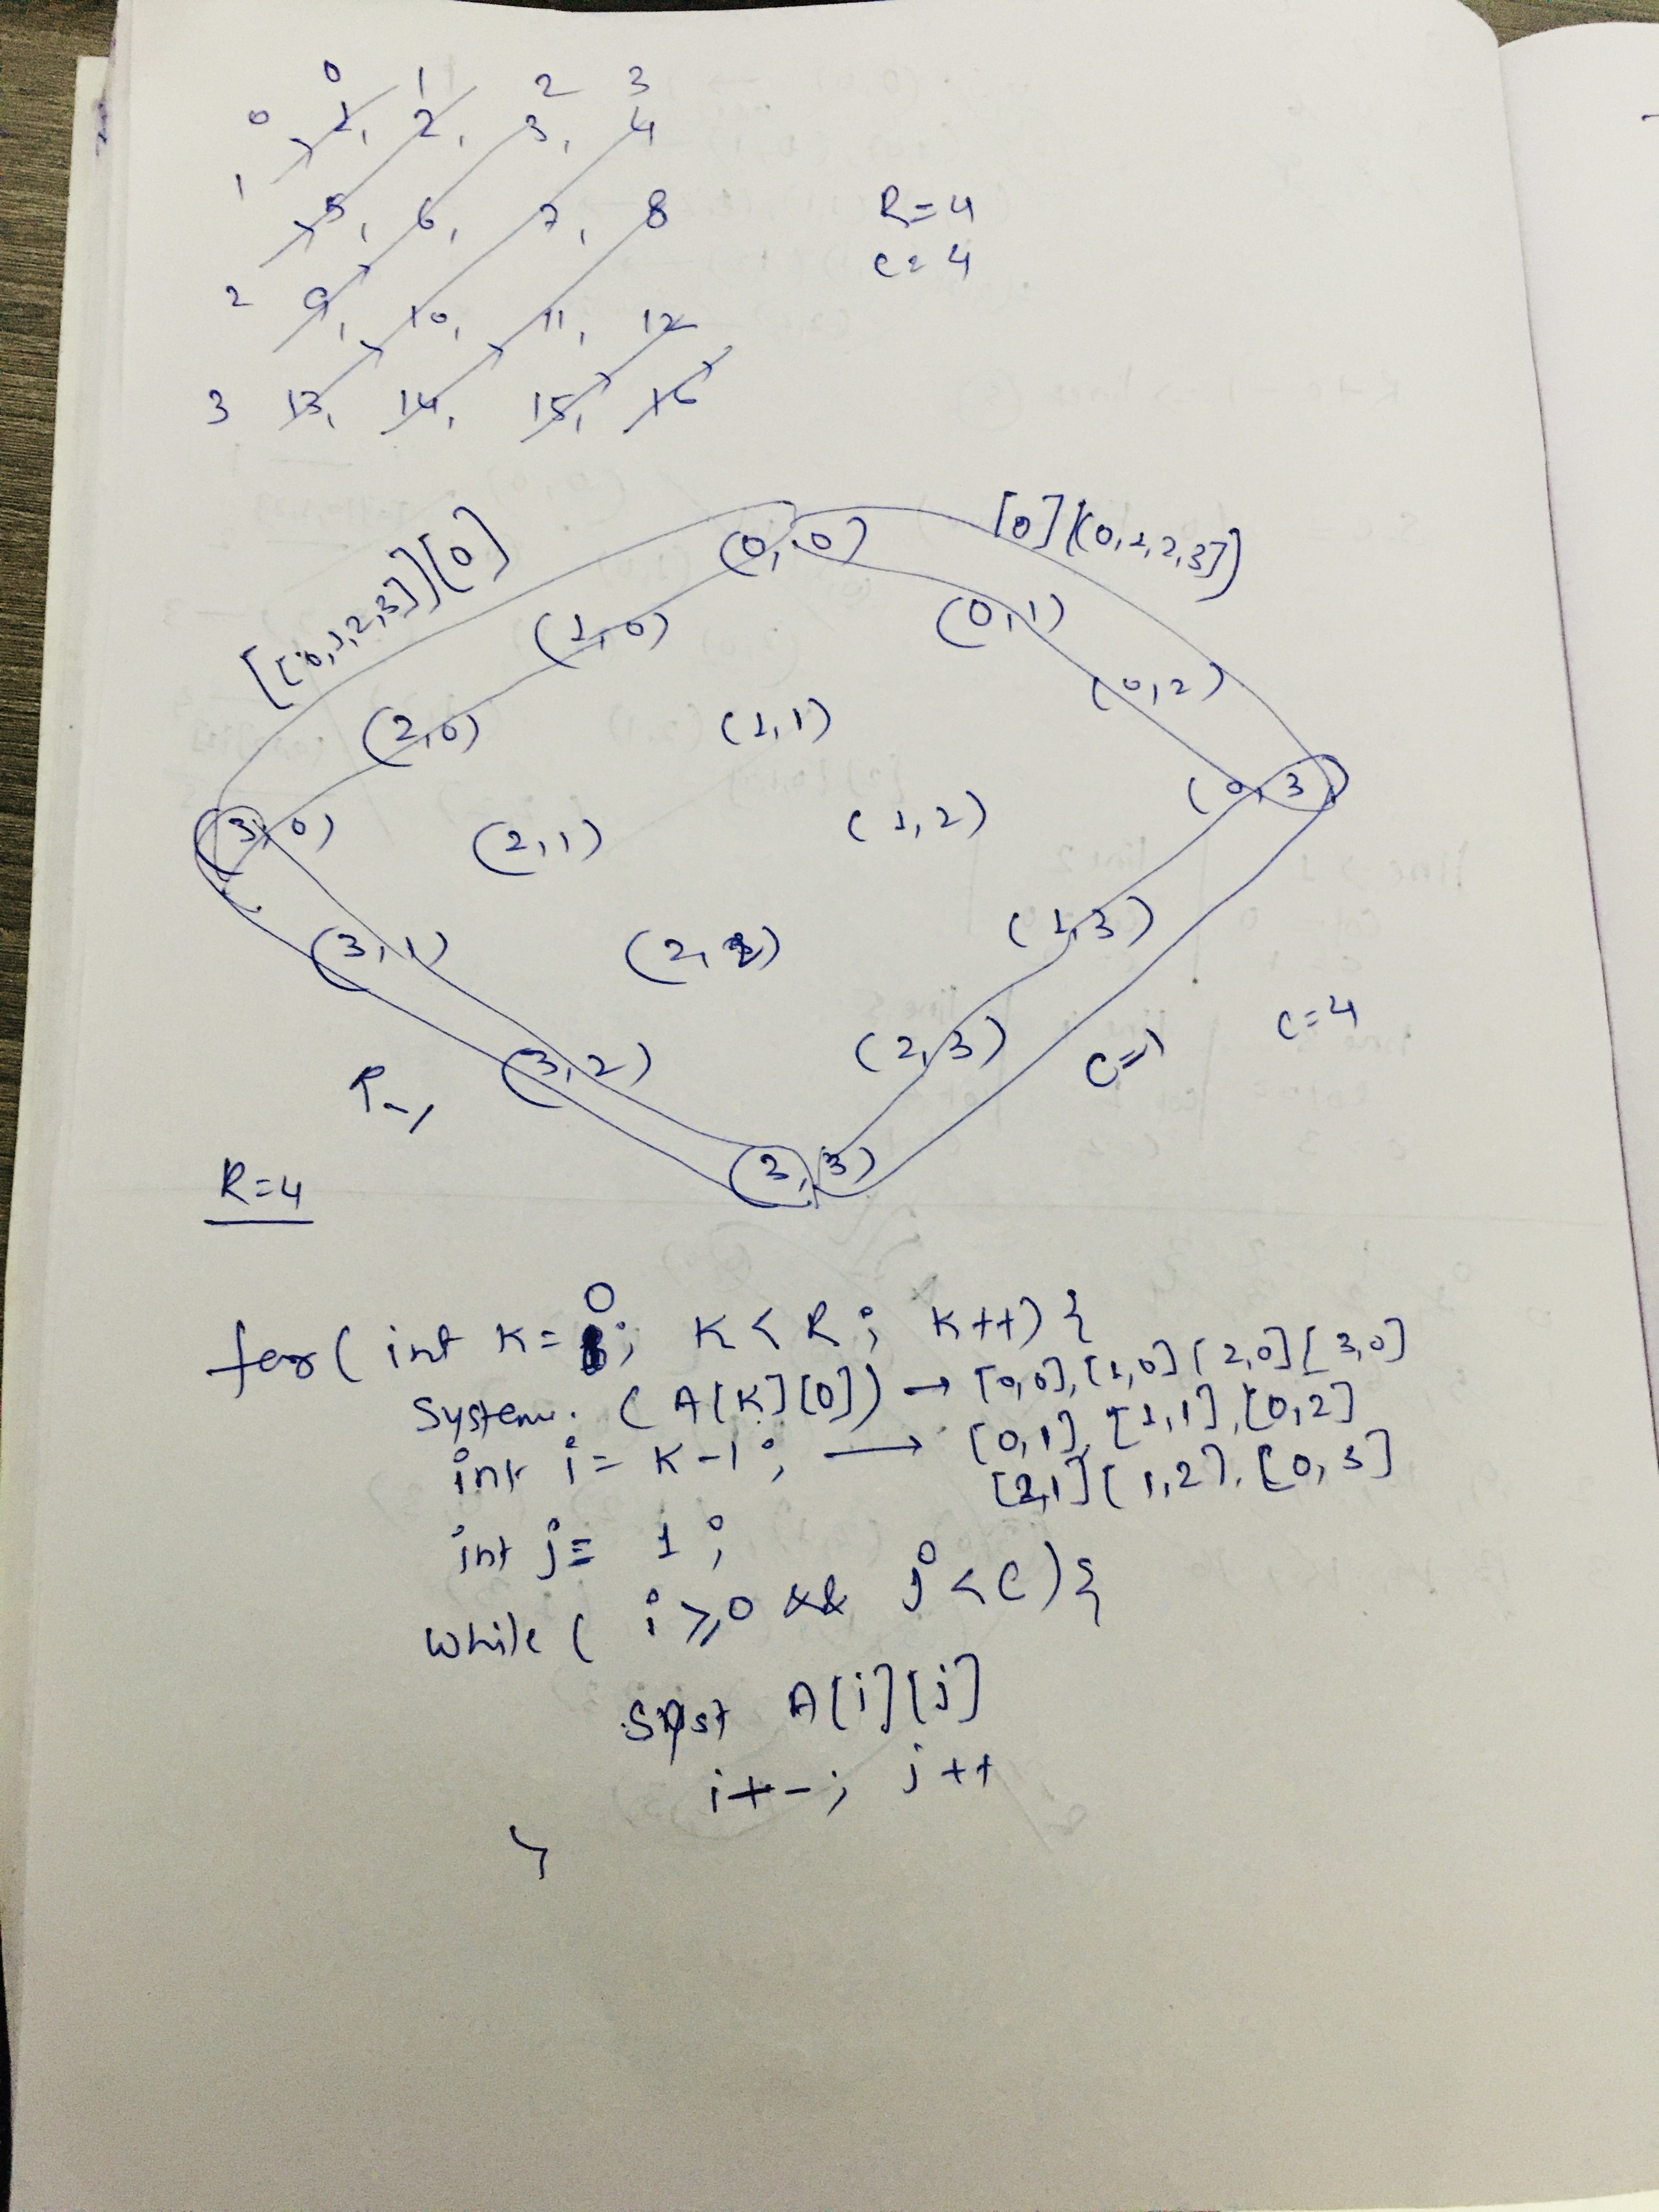 0 1 2 3
0 1, 2, 3, 4
1 5, 6, 7, 8
2 9, 10, 11, 12
3 13, 14, 15, 16
R=4
C=4
[0][(0,1,2,3)]
[(0,1,2,3)][0]
(0,0)
(1,0) (0,1)
(2,0) (1,1) (0,2)
(3,0) (2,1) (1,2) (0,3)
(3,1) (2,2) (1,3)
(3,2) (2,3)
(3,3)
C-1
C=4
R-1
R=4
for( int K=0; K<R; K++){
System. (A[K][0]) → [0,0],[1,0][2,0][3,0]
int i= K-1; → [0,1],[1,1],[0,2]
[2,1][1,2],[0,3]
int j= 1;
while( i≥0 && j<C){
A[i][j]
i--; j++
}